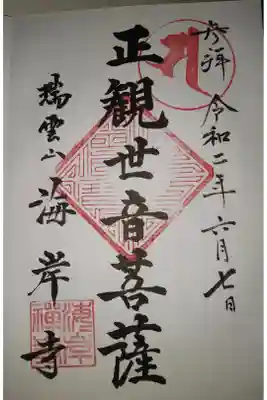 参拝 令和二年六月七日
正観世音菩薩
瑞雲山 海岸寺
海岸禅寺